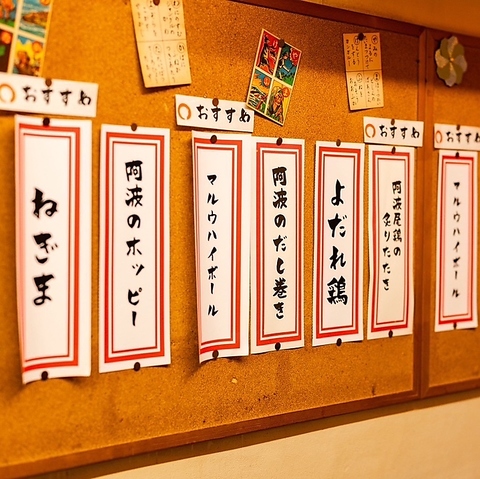 おすすめ
ねぎま
阿波のホッピー
おすすめ
マルウハイボール
阿波のだし巻き
よだれ鶏
おすすめ
阿波尾鶏の
炙りたたき
おすすめ
マルウハイボール